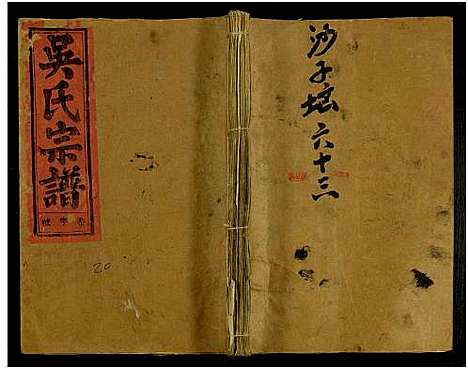 吳氏宗譜
20
沙子塘六十三